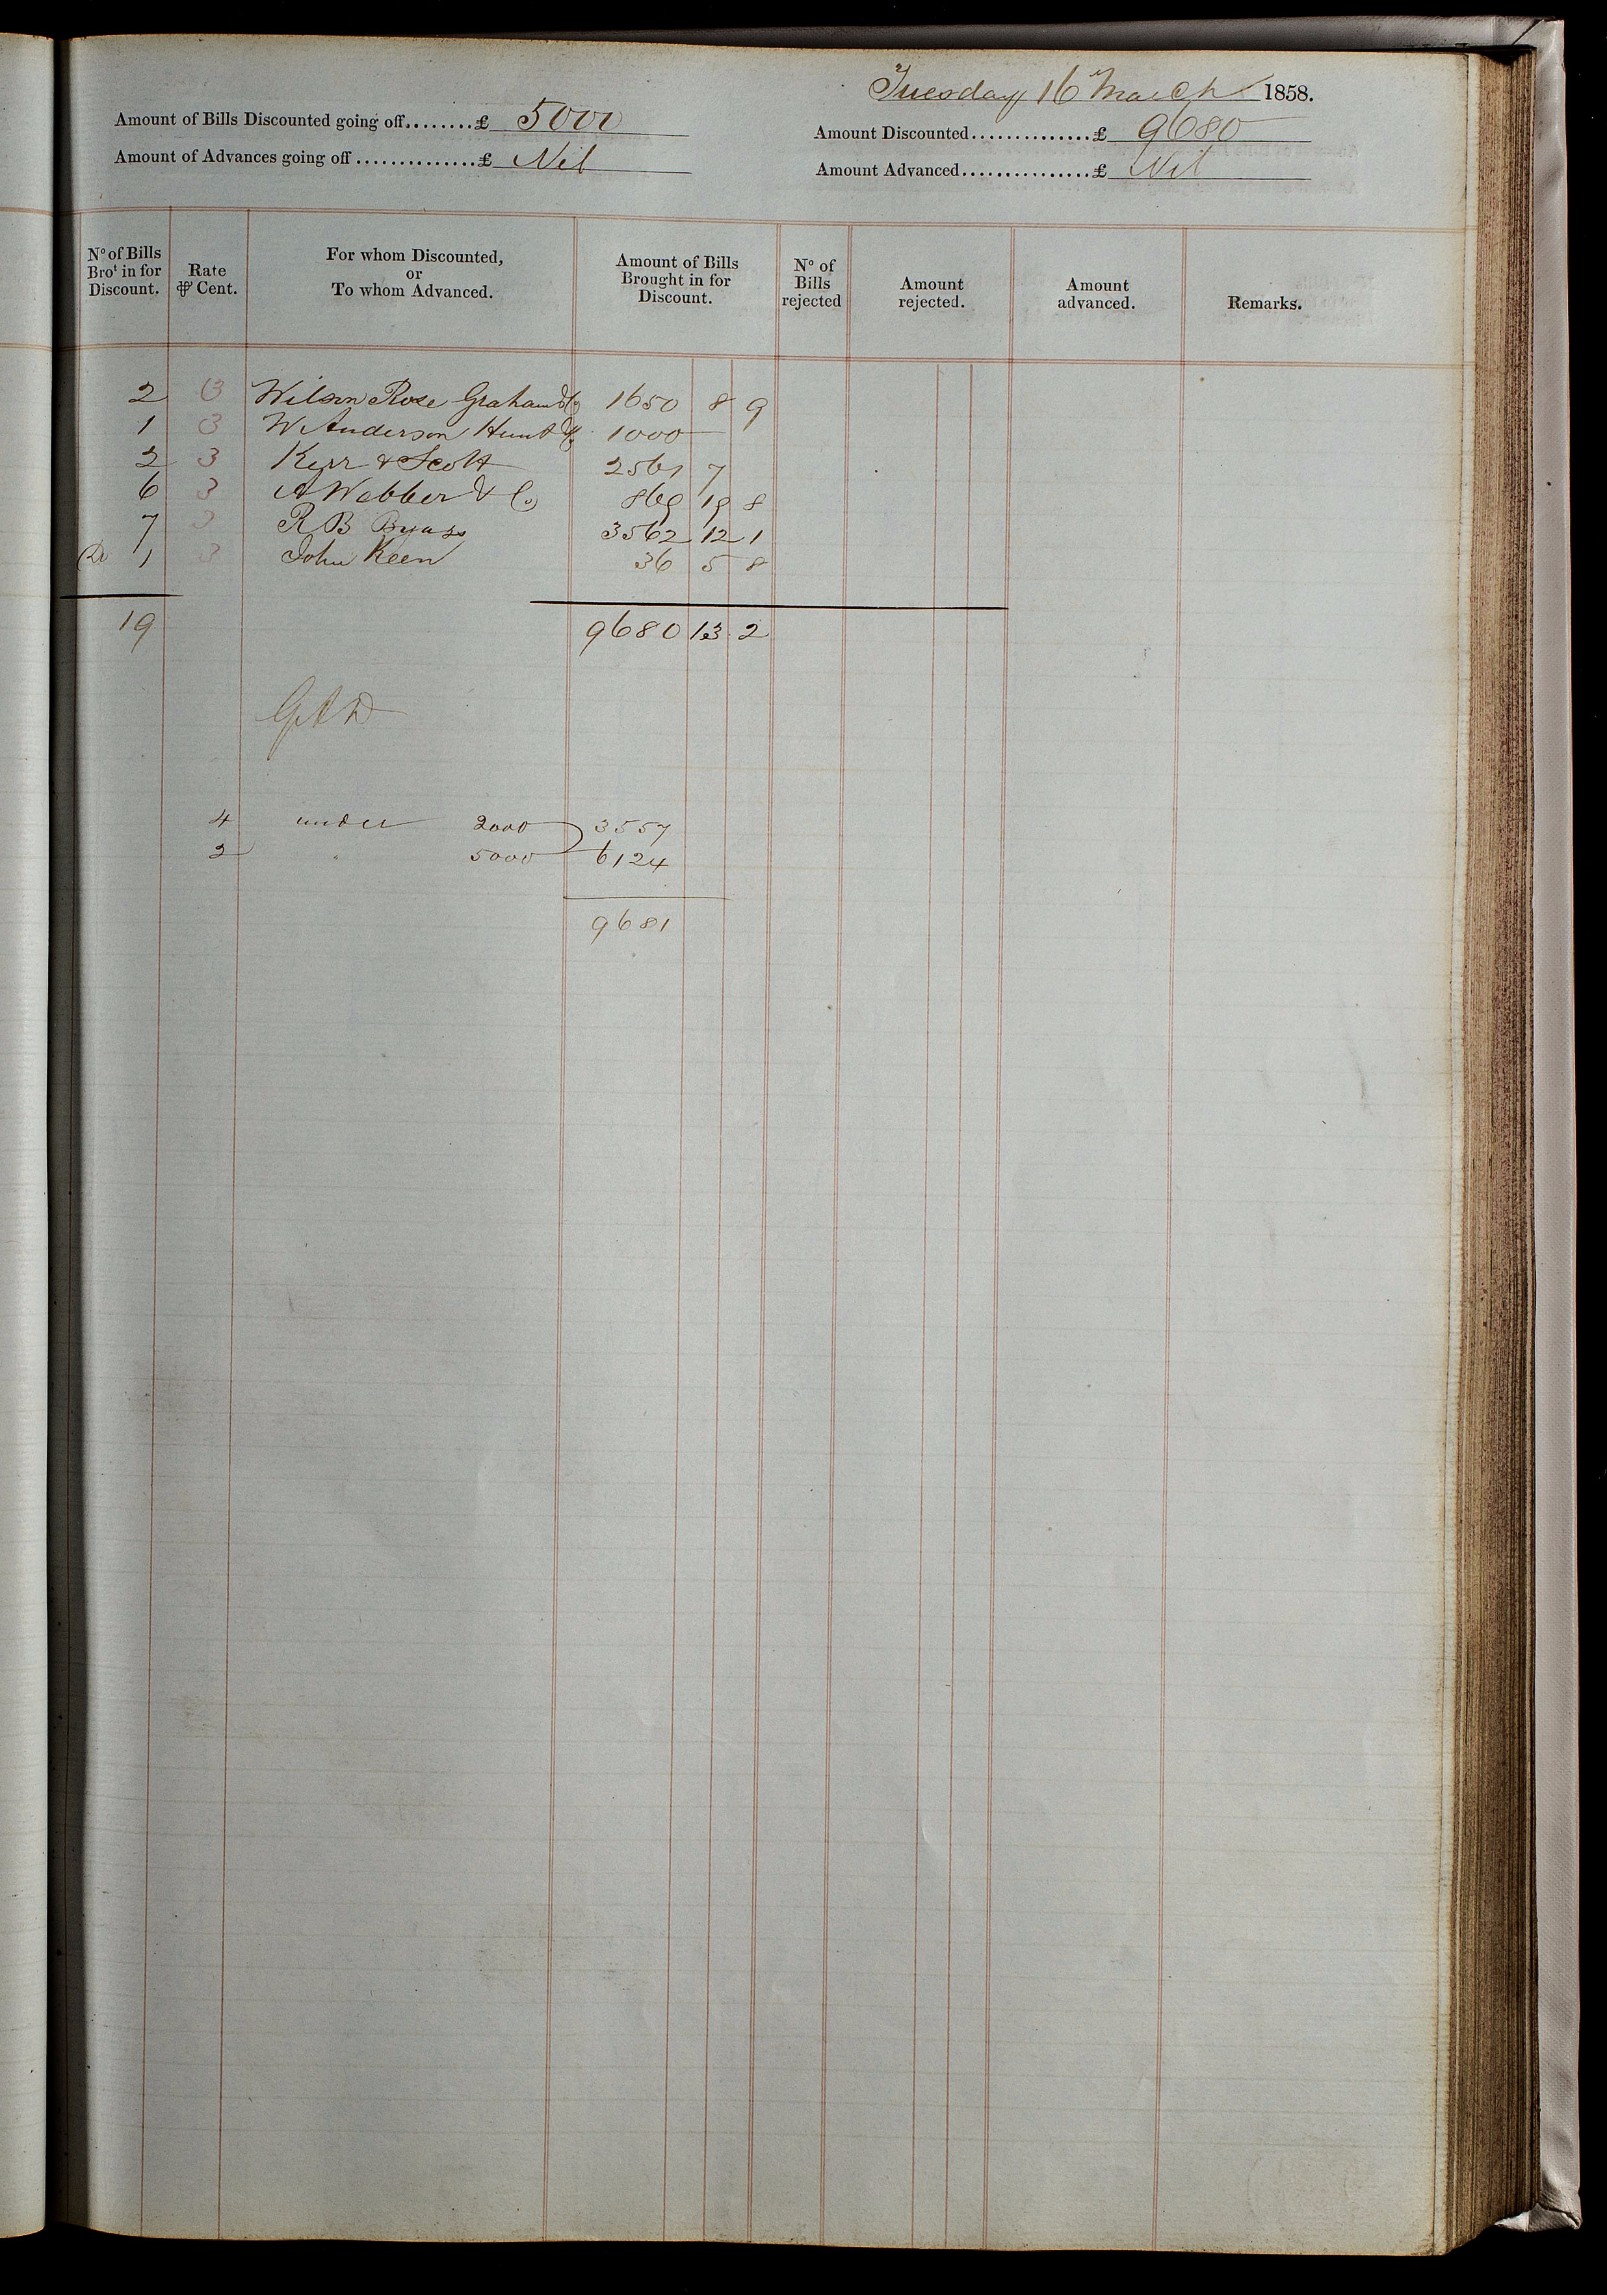 Tuesday 16 March 1858.
Amount of Bills Discounted going off........£ 5000
Amount Discounted..............£ 9680
Amount of Advances going off..............£ Nil
Amount Advanced...............£ Nil
No of Bills Brot in for Discount.
Rate ⅌ Cent.
For whom Discounted, or To whom Advanced.
Amount of Bills Brought in for Discount.
No of Bills rejected
Amount rejected.
Amount advanced.
Remarks.
2 3 Wilson Rose Graham & Co 1650 8 9
1 3 W Anderson Hunt & Co 1000
2 3 Kerr & Scott 2561 7
6 3 A Webber & Co 869 19 8
7 3 R B Byass 3562 12 1
1 3 John Keen 36 5 8
19 9680 13 2
4 under 2000 3557
2 " 5000 6124
9681